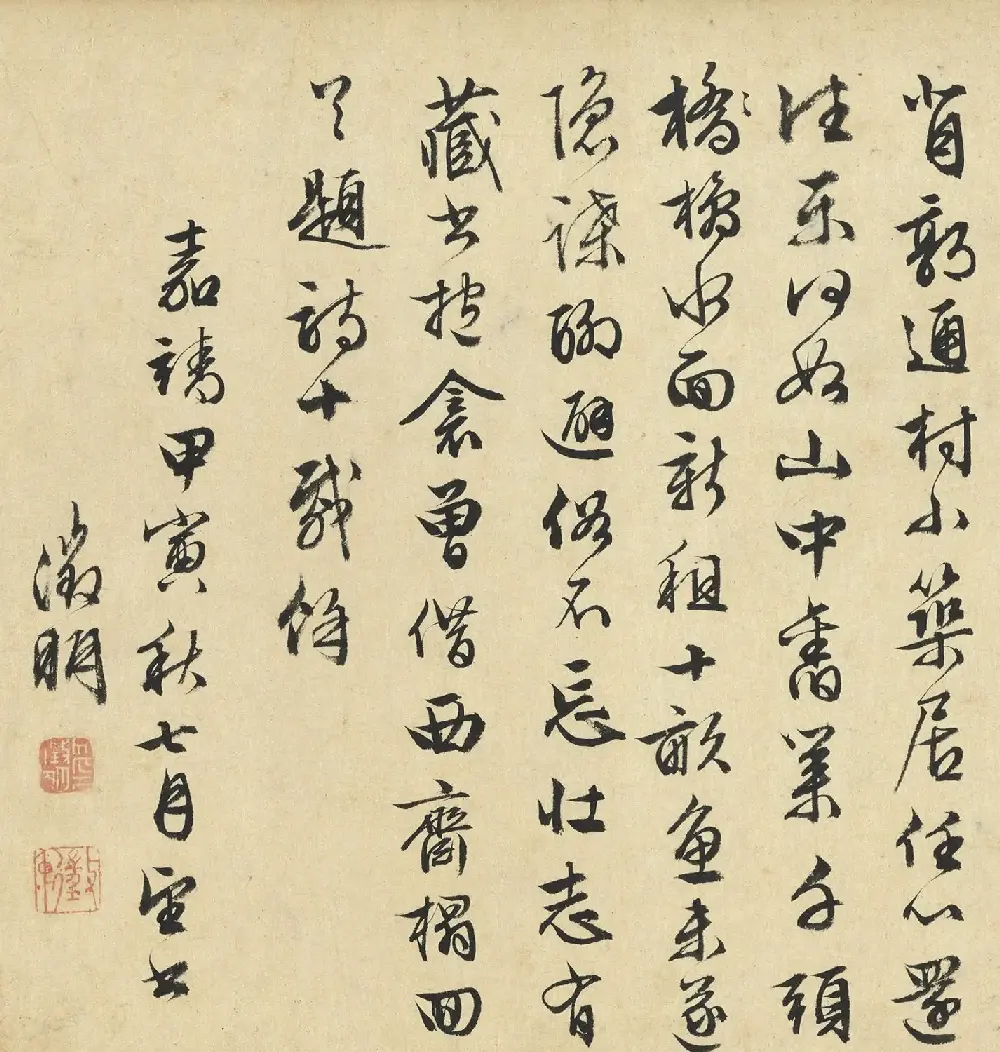 背郭通村小築居任心還
往樂何如山中舊業千頭
橋橘水面新租十畝魚未遂
隱謀聊避俗不忘壯志有
藏書抱衾曾借西齋榻回
首題詩十載餘
嘉靖甲寅秋七月望書
徵明